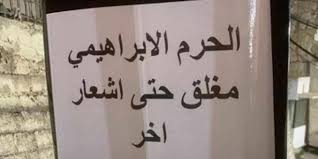 الحرم الابراهيمي
مغلق حتى اشعار
اخر